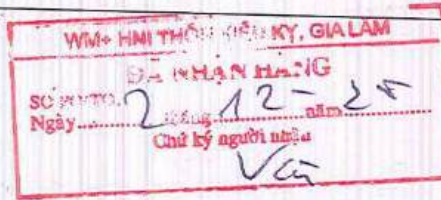 WM+ HNI THÔN KIÊU KỴ, GIA LÂM
ĐÃ NHẬN HÀNG
SỐ PO/TO:
Ngày 2 tháng 12 - năm 25
Chữ ký người nhận